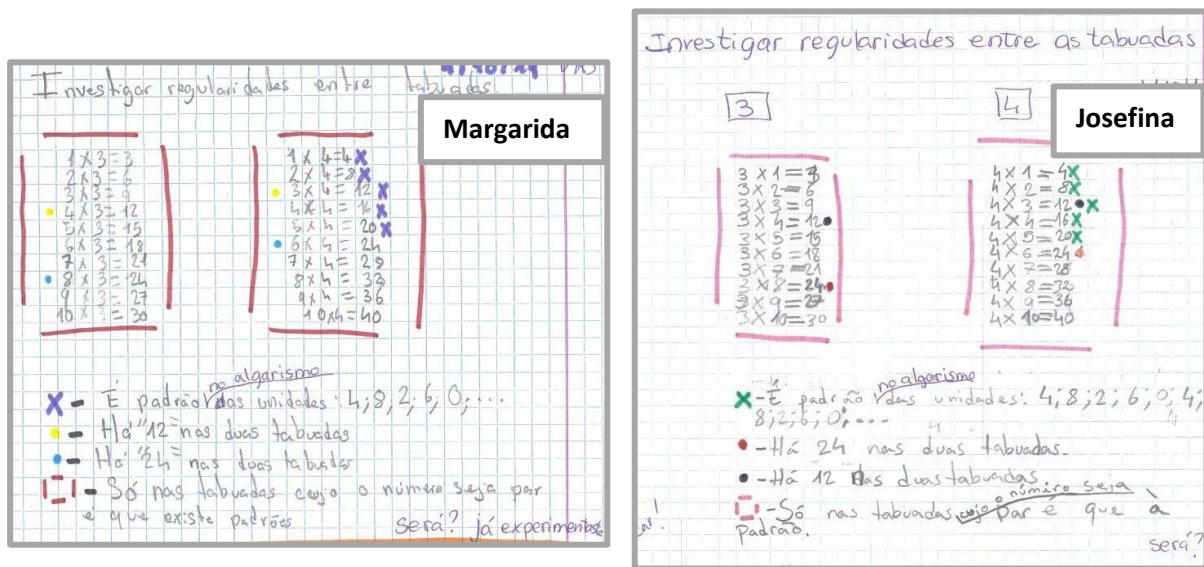 Investigar regularidades entre tabuadas
Margarida
1 x 3 = 3
2 x 3 = 6
3 x 3 = 9
4 x 3 = 12
5 x 3 = 15
6 x 3 = 18
7 x 3 = 21
8 x 3 = 24
9 x 3 = 27
10 x 3 = 30
1 x 4 = 4 x
2 x 4 = 8 x
3 x 4 = 12 x
4 x 4 = 16 x
5 x 4 = 20 x
6 x 4 = 24
7 x 4 = 28
8 x 4 = 32
9 x 4 = 36
10 x 4 = 40
no algarismo
X - É padrão das unidades: 4; 8; 2; 6; 0; ...
- Há "12" nas duas tabuadas
- Há "24" nas duas tabuadas
- Só nas tabuadas cujo o número seja par
é que existe padrões
Será? já experimentaste
Investigar regularidades entre as tabuadas
3
4
Josefina
3 x 1 = 3
3 x 2 = 6
3 x 3 = 9
3 x 4 = 12
3 x 5 = 15
3 x 6 = 18
3 x 7 = 21
3 x 8 = 24
3 x 9 = 27
3 x 10 = 30
4 x 1 = 4 x
4 x 2 = 8 x
4 x 3 = 12 x
4 x 4 = 16 x
4 x 5 = 20 x
4 x 6 = 24
4 x 7 = 28
4 x 8 = 32
4 x 9 = 36
4 x 10 = 40
no algarismo
X - É padrão das unidades: 4; 8; 2; 6; 0; 4;
8; 2; 6; 0; ...
- Há 24 nas duas tabuadas.
- Há 12 nas duas tabuadas
o número seja
- Só nas tabuadas cujo par é que à
padrão.
será?